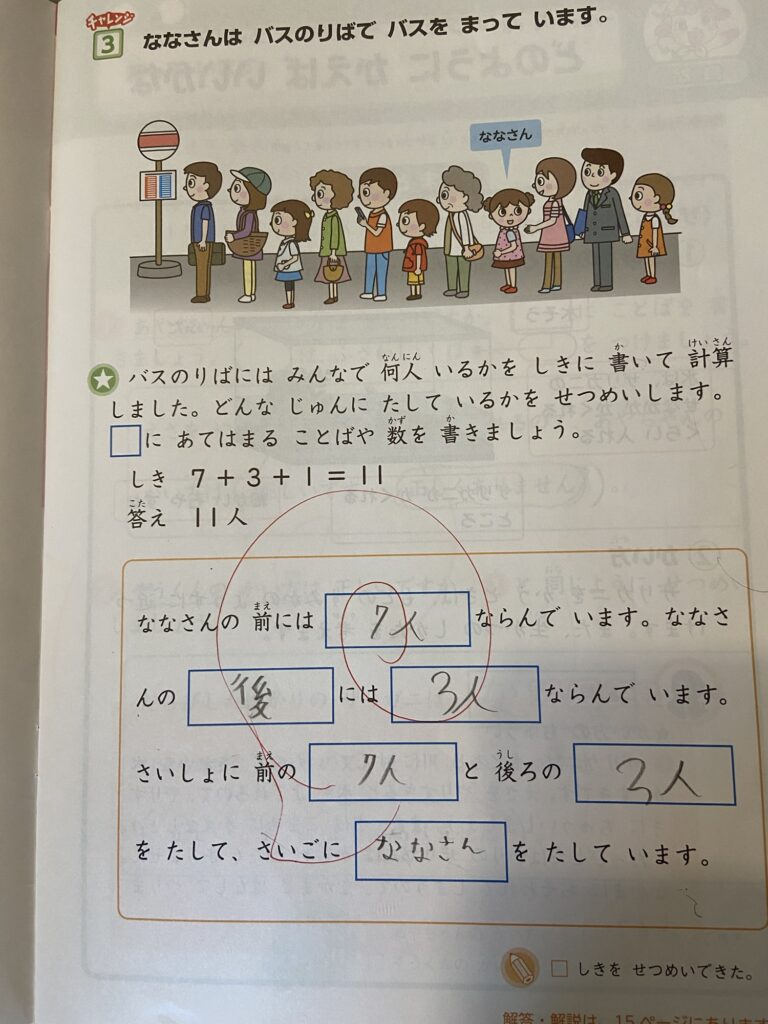 チャレンジ
3 ななさんは バスのりばで バスを まって います。
ななさん
バスのりばには みんなで 何人 いるかを しきに 書いて 計算
しました。どんな じゅんに たして いるかを せつめいします。
□に あてはまる ことばや 数を 書きましょう。
しき 7+3+1=11
答え 11人
ななさんの 前には 7人 ならんで います。ななさ
んの 後 には 3人 ならんで います。
さいしょに 前の 7人 と 後ろの 3人
を たして、さいごに ななさん を たして います。
□ しきを せつめいできた。
解答・解説は、15ページにあります